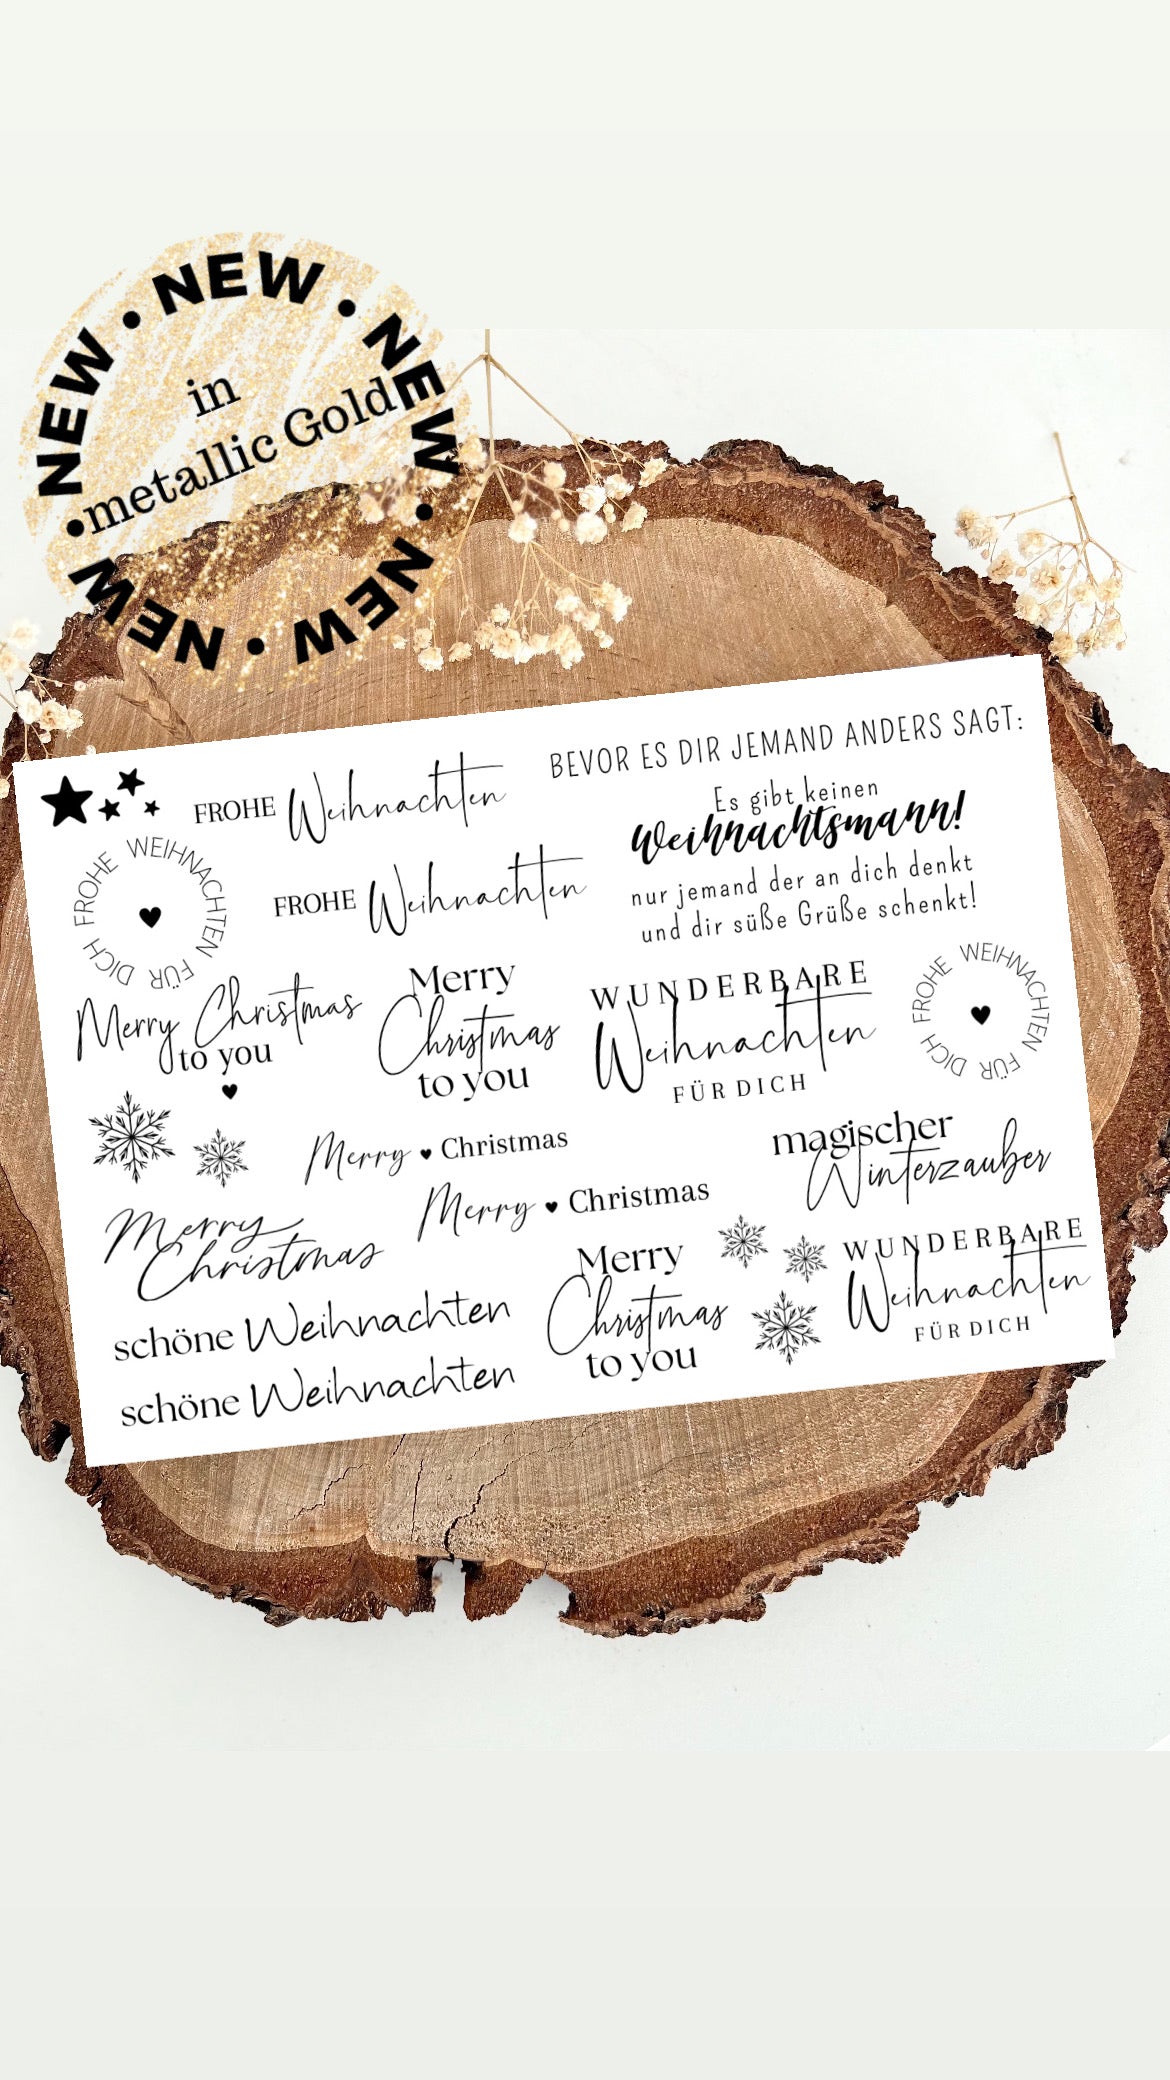 NEW • NEW • NEW • NEW • NEW • NEW •
in
metallic Gold
FROHE Weihnachten
BEVOR ES DIR JEMAND ANDERS SAGT:
Es gibt keinen
Weihnachtsmann!
nur jemand der an dich denkt
und dir süße Grüße schenkt!
FROHE WEIHNACHTEN FÜR DICH
FROHE Weihnachten
Merry Christmas
to you
Merry
Christmas
to you
WUNDERBARE
Weihnachten
FÜR DICH
FROHE WEIHNACHTEN FÜR DICH
Merry Christmas
Merry Christmas
magischer
Winterzauber
Merry
Christmas
Merry
Christmas
to you
WUNDERBARE
Weihnachten
FÜR DICH
schöne Weihnachten
schöne Weihnachten